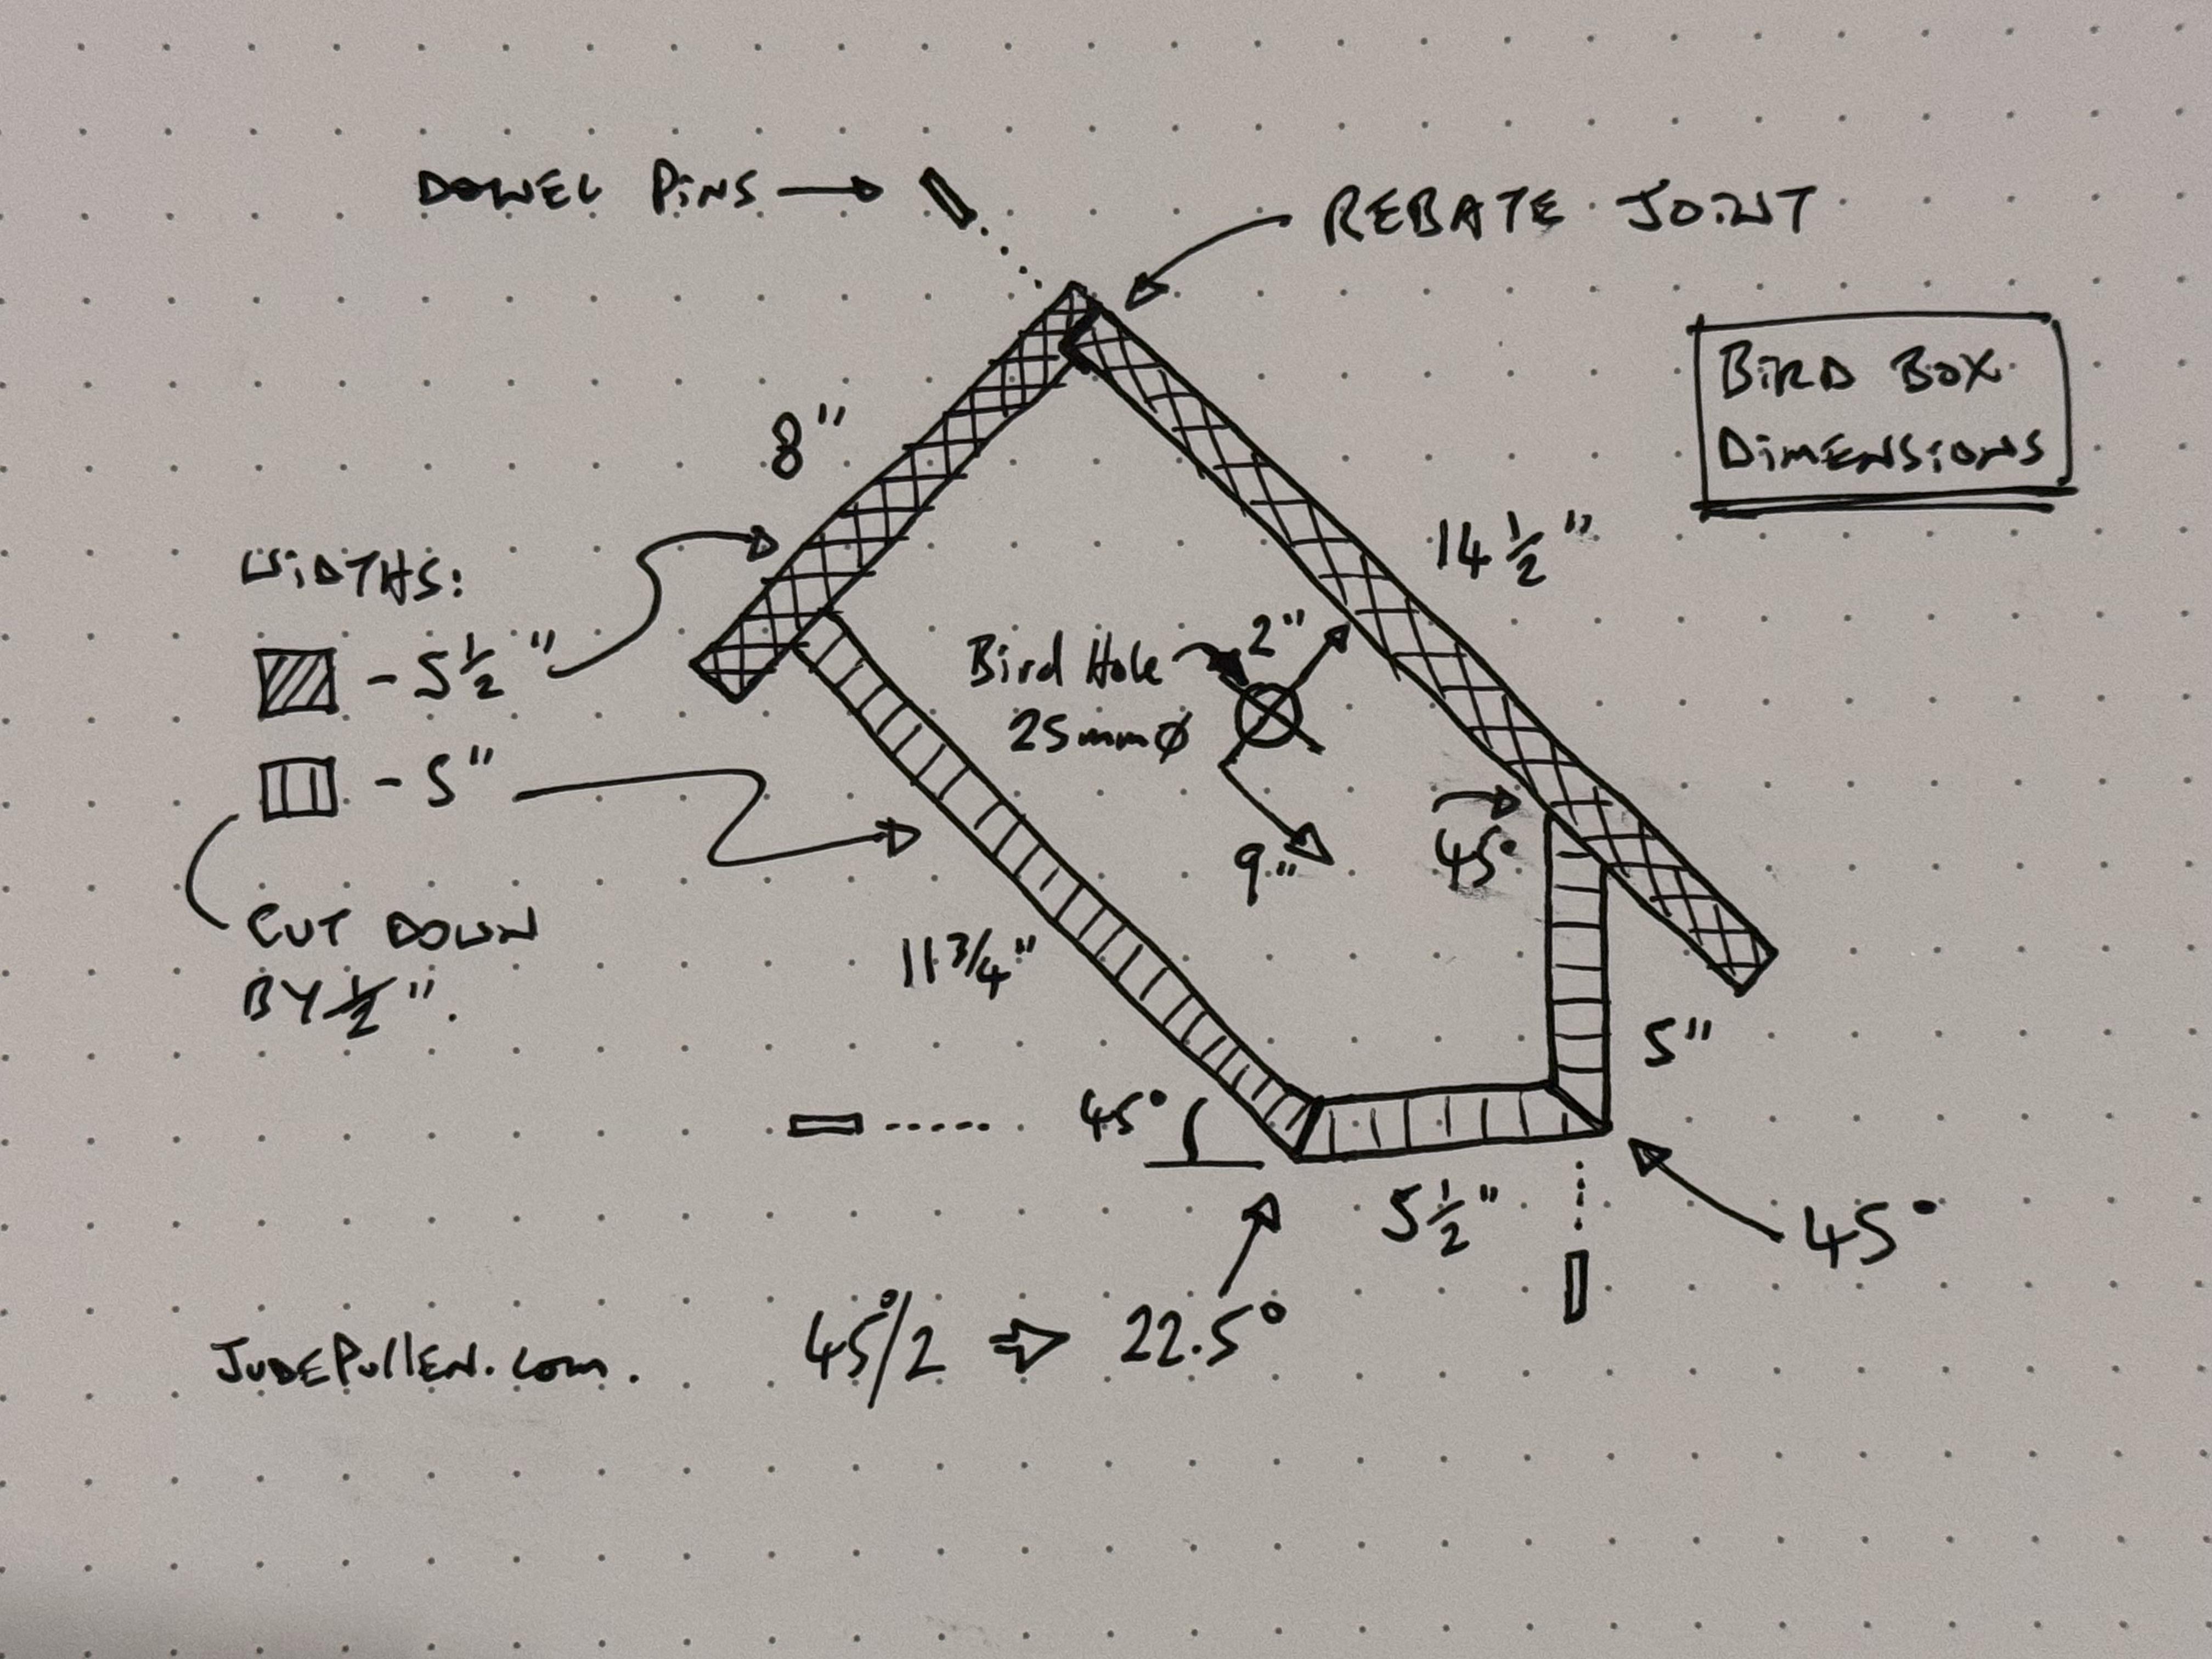 DOWEL PINS
REBATE JOINT
BIRD BOX
DIMENSIONS
8"
14 1/2"
WIDTHS:
- 5 1/2"
- 5"
CUT DOWN
BY 1/2".
Bird Hole
25mmø
2"
9"
45°
11 3/4"
5"
45°
5 1/2"
45°
45°/2 ⇒ 22.5°
JUDEPULLEN.com.